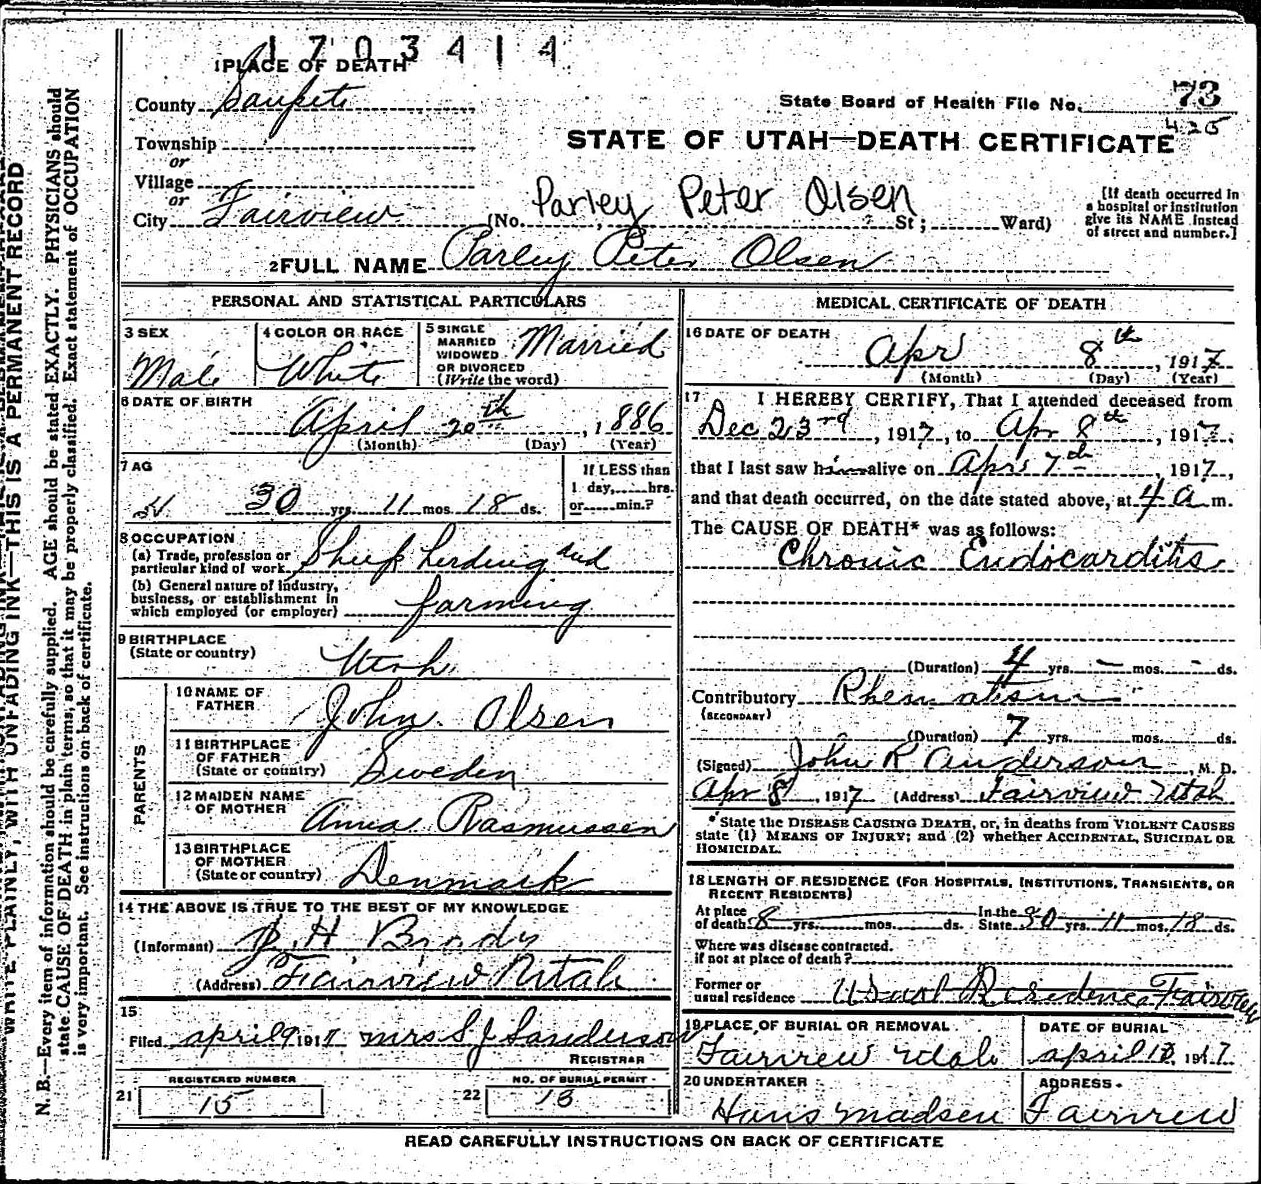 1703414
1 PLACE OF DEATH
County Sanpete
State Board of Health File No. 73
425
Township
or
Village
or
City Fairview (No. Parley Peter Olsen St; Ward)
STATE OF UTAH—DEATH CERTIFICATE
[If death occurred in
a hospital or institution
give its NAME instead
of street and number.]
2 FULL NAME Parley Peter Olsen
PERSONAL AND STATISTICAL PARTICULARS
3 SEX
Male
4 COLOR OR RACE
White
5 SINGLE
MARRIED
WIDOWED
OR DIVORCED
(Write the word)
Married
6 DATE OF BIRTH
April 20th, 1886
(Month) (Day) (Year)
7 AG
30 yrs. 11 mos. 18 ds.
If LESS than
1 day, hrs.
or min.?
8 OCCUPATION
(a) Trade, profession or
particular kind of work Sheep herding and
(b) General nature of industry,
business, or establishment in
which employed (or employer) farming
9 BIRTHPLACE
(State or country) Utah
PARENTS
10 NAME OF
FATHER John Olsen
11 BIRTHPLACE
OF FATHER
(State or country) Sweden
12 MAIDEN NAME
OF MOTHER Anna Rasmussen
13 BIRTHPLACE
OF MOTHER
(State or country) Denmark
14 THE ABOVE IS TRUE TO THE BEST OF MY KNOWLEDGE
(Informant) H Brady
(Address) Fairview Utah
15
Filed April 9 1917 Mrs S J Sanderson
REGISTRAR
REGISTERED NUMBER
21 15
NO. OF BURIAL PERMIT
22 13
MEDICAL CERTIFICATE OF DEATH
16 DATE OF DEATH
Apr 8th, 1917
(Month) (Day) (Year)
17 I HEREBY CERTIFY, That I attended deceased from
Dec 23rd, 1917, to Apr 8th, 1917,
that I last saw him alive on Apr 7th, 1917,
and that death occurred, on the date stated above, at 4 a m.
The CAUSE OF DEATH* was as follows:
Chronic Endocarditis
(Duration) 4 yrs. - mos. - ds.
Contributory Rheumatism
(SECONDARY)
(Duration) 7 yrs. mos. ds.
(Signed) John R Anderson, M. D.
Apr 8, 1917 (Address) Fairview Utah
*State the DISEASE CAUSING DEATH, or, in deaths from VIOLENT CAUSES
state (1) MEANS OF INJURY; and (2) whether ACCIDENTAL, SUICIDAL OR
HOMICIDAL.
18 LENGTH OF RESIDENCE (FOR HOSPITALS, INSTITUTIONS, TRANSIENTS, OR
RECENT RESIDENTS)
At place
of death 8 yrs. mos. ds. In the
State 30 yrs. 11 mos. 18 ds.
Where was disease contracted.
if not at place of death?
Former or
usual residence Usual Residence Fairview
19 PLACE OF BURIAL OR REMOVAL
Fairview Utah
DATE OF BURIAL
April 1917.
20 UNDERTAKER
Hans Madsen
ADDRESS
Fairview
READ CAREFULLY INSTRUCTIONS ON BACK OF CERTIFICATE
WRITE PLAINLY, WITH UNFADING INK—THIS IS A PERMANENT RECORD
N. B.—Every item of information should be carefully supplied. AGE should be stated EXACTLY. PHYSICIANS should
state CAUSE OF DEATH in plain terms, so that it may be properly classified. Exact statement of OCCUPATION
is very important. See instructions on back of certificate.